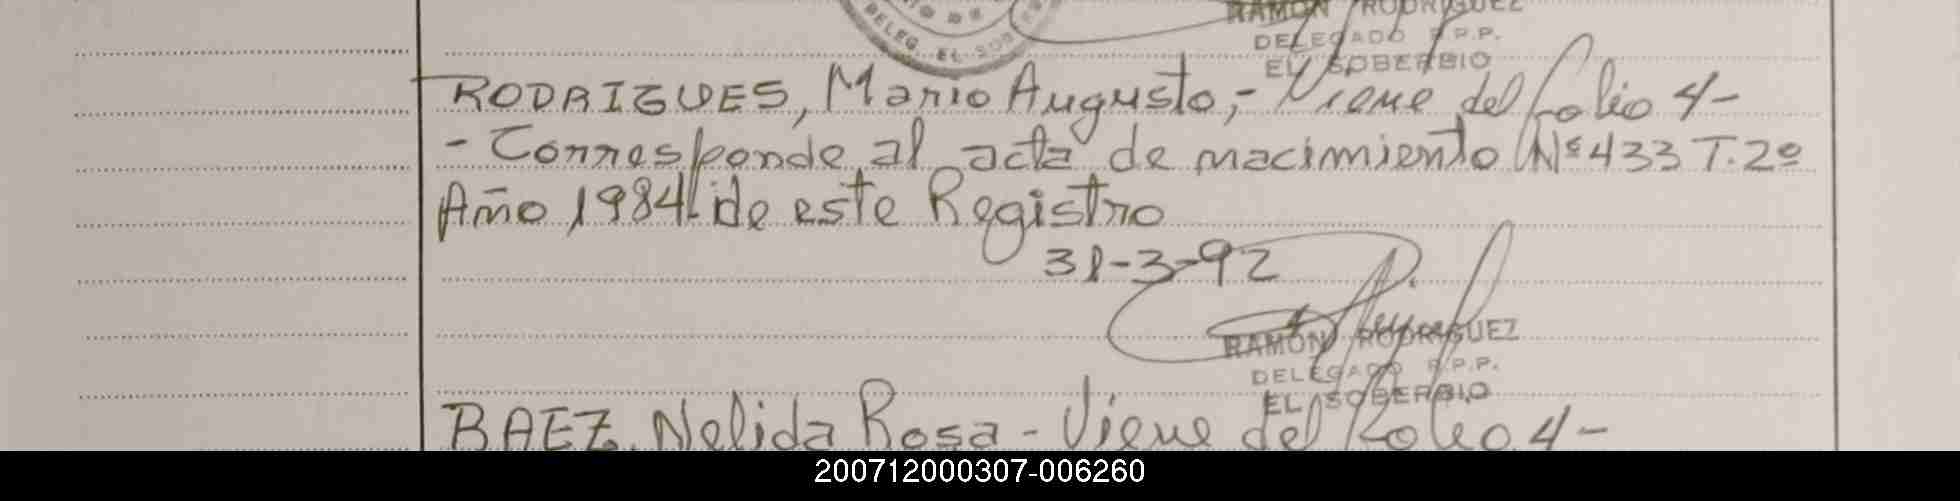 DELEG. EL SOBERBIO
RAMÓN RODRIGUEZ
DELEGADO R.P.P.
EL SOBERBIO
RODRIGUES, Mario Augusto,- Viene del folio 4-
- Corresponde al acta de nacimiento Nº 433 T. 2º
Año 1984 de este Registro
31-3-92
RAMÓN RODRIGUEZ
DELEGADO R.P.P.
EL SOBERBIO
BAEZ, Nelida Rosa - Viene del Folio 4-
200712000307-006260